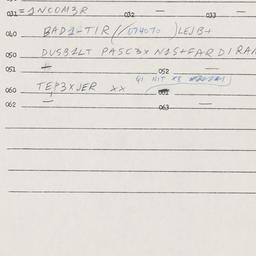 031 = 1NCOM3R 032 — 033 —
040 BAD1-TIR (//074070 )LEJB+
050 DUSB1LT PASC3X N1S+FARDIRAN
051 + 052 —
GI HIT
060 TEP3XJER XX 061
062 — 063 —